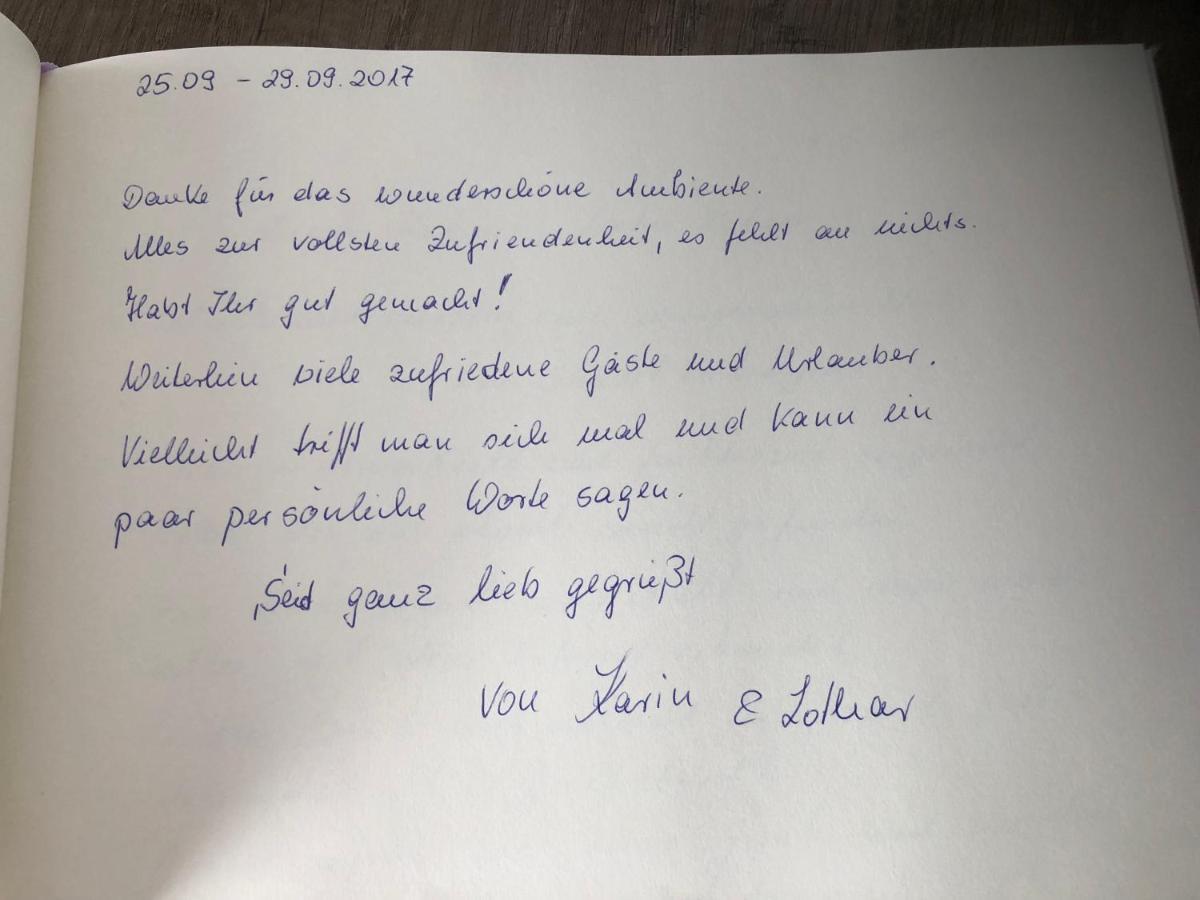 25.09 - 29.09.2017
Danke für das wunderschöne Ambiente.
Alles zur vollsten Zufriendenheit, es fehlt an nichts.
Habt Ihr gut gemacht!
Weiterhin viele zufriedene Gäste und Urlauber.
Vielleicht trifft man sich mal und kann ein
paar persönliche Worte sagen.
Seid ganz lieb gegrüßt
von Karin & Lothar